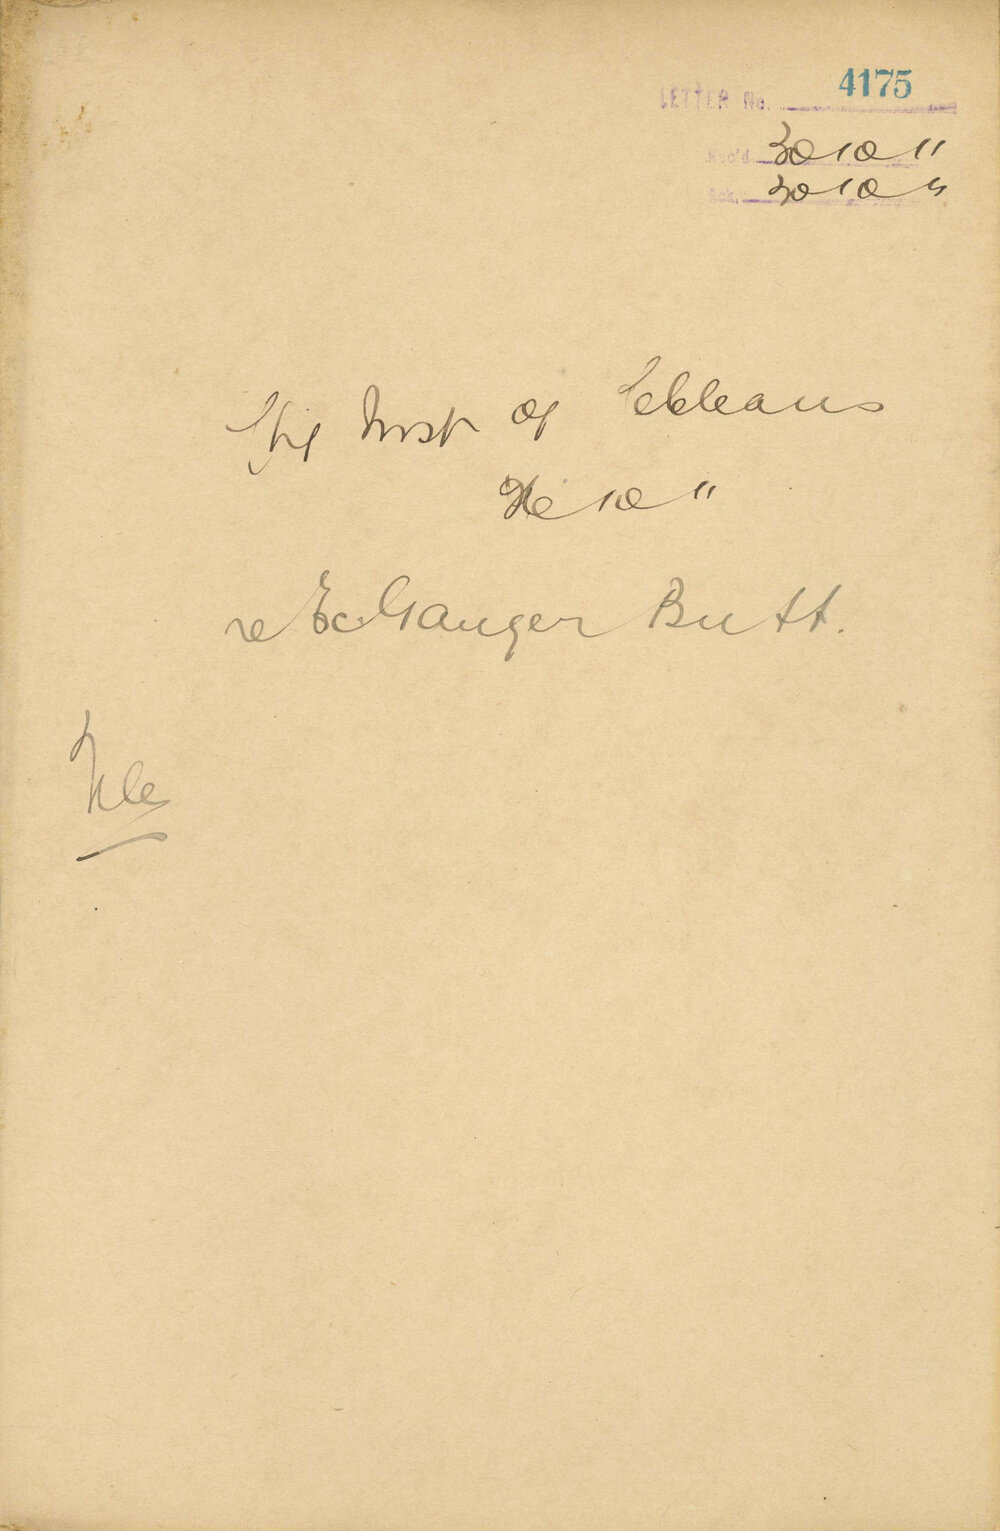 LETTER No. 4175
Rec'd 30/10/11
Ack. 30/10/11
Insp of
10/11
re Ex Ganger Butt.
File